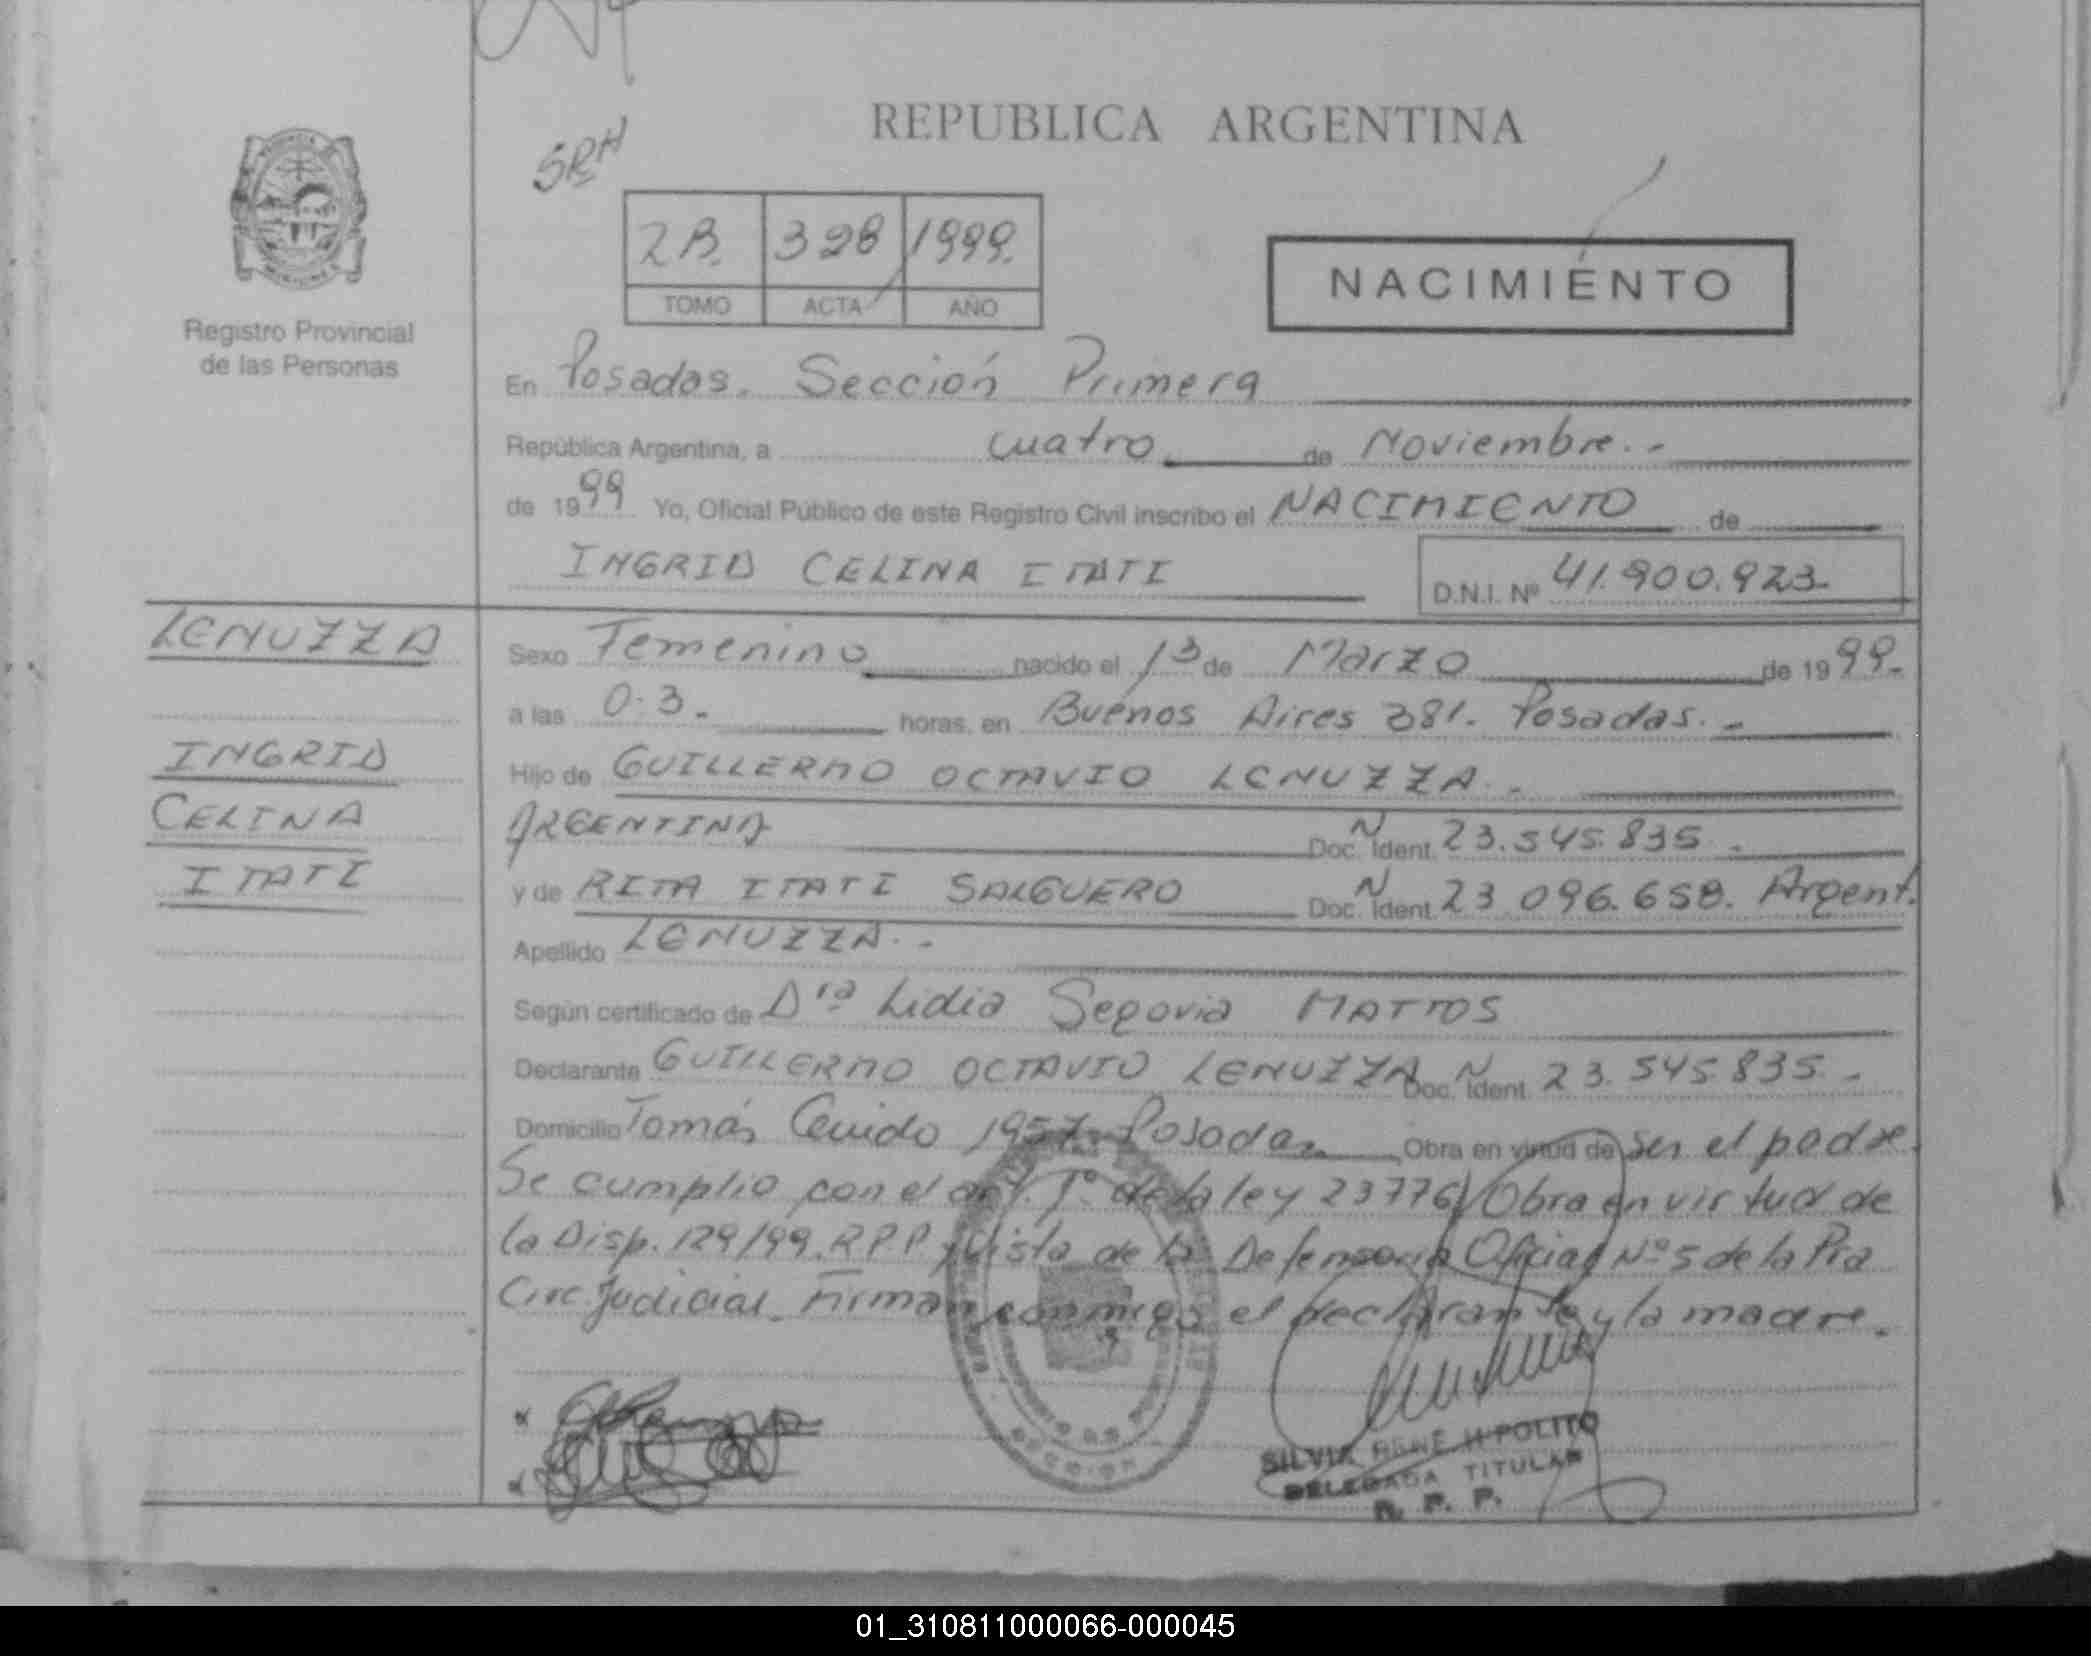 REPUBLICA ARGENTINA
SRH
2B. 398 1999.
TOMO ACTA AÑO
NACIMIENTO
Registro Provincial
de las Personas
En Posadas. Sección Primera
República Argentina, a cuatro de Noviembre.-
de 1999 Yo, Oficial Público de este Registro Civil inscribo el NACIMIENTO de
INGRID CELINA ITATI D.N.I. Nº 41.900.923-
LENUZZA
INGRID
CELINA
ITATI
Sexo Femenino nacido el 13 de Marzo de 1999.-
a las 0.3.- horas, en Buenos Aires 381. Posadas.-
Hijo de GUILLERMO OCTAVIO LENUZZA.-
ARGENTINA Doc. N Ident. 23.545.835.-
y de RITA ITATI SALGUERO Doc. N Ident. 23 096.658. Argent.
Apellido LENUZZA.-
Según certificado de Dra Lidia Segovia MATTOS
Declarante GUILLERMO OCTAVIO LENUZZA Doc. N Ident. 23.545.835.-
Domicilio Tomás Guido 1957 Posadas Obra en virtud de ser el padre.
Se cumplio con el art. 1º de la ley 23776/ Obra en virtud de
la Disp. 129/99. R P P y vista de la Defensoria Oficial Nº 5 de la Pra
Circ. Judicial. Firman conmigo el declarante y la madre.
SILVIA RENE HIPOLITO
DELEGADA TITULAR
R. P. P.
01_310811000066-000045